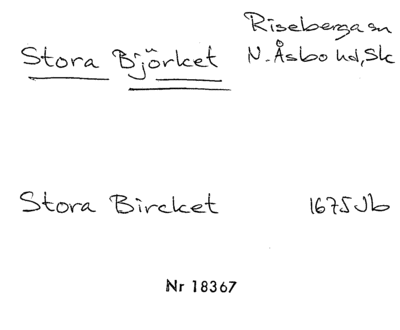 Riseberga sn
Stora Björket N. Åsbo hd, Sk
Stora Bircket 1675 Jb
Nr 18367